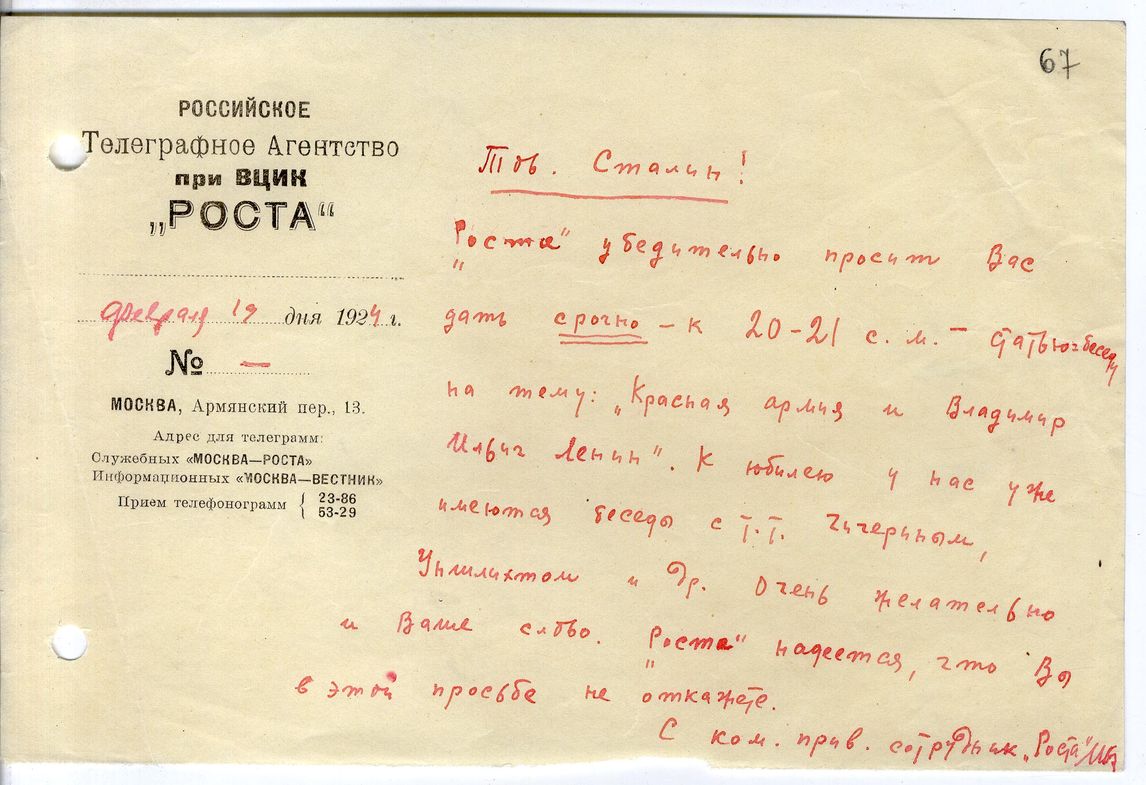 67
РОССИЙСКОЕ
Телеграфное Агентство
при ВЦИК
„РОСТА“
февраля 19 дня 1924 г.
№ —
МОСКВА, Армянский пер., 13.
Адрес для телеграмм:
Служебных «МОСКВА—РОСТА»
Информационных «МОСКВА—ВЕСТНИК»
Прием телефонограмм { 23-86
53-29
Тов. Сталин!
„Роста“ убедительно просит Вас
дать срочно – к 20–21 с. м. – статью-беседу
на тему: „Красная армия и Владимир
Ильич Ленин“. К юбилею у нас уже
имеются беседы с т.т. Чичериным,
Уншлихтом и др. Очень желательно
и Ваше слово. „Роста“ надеется, что Вы
в этой просьбе не откажете.
С ком. прив. сотрудник „Роста“